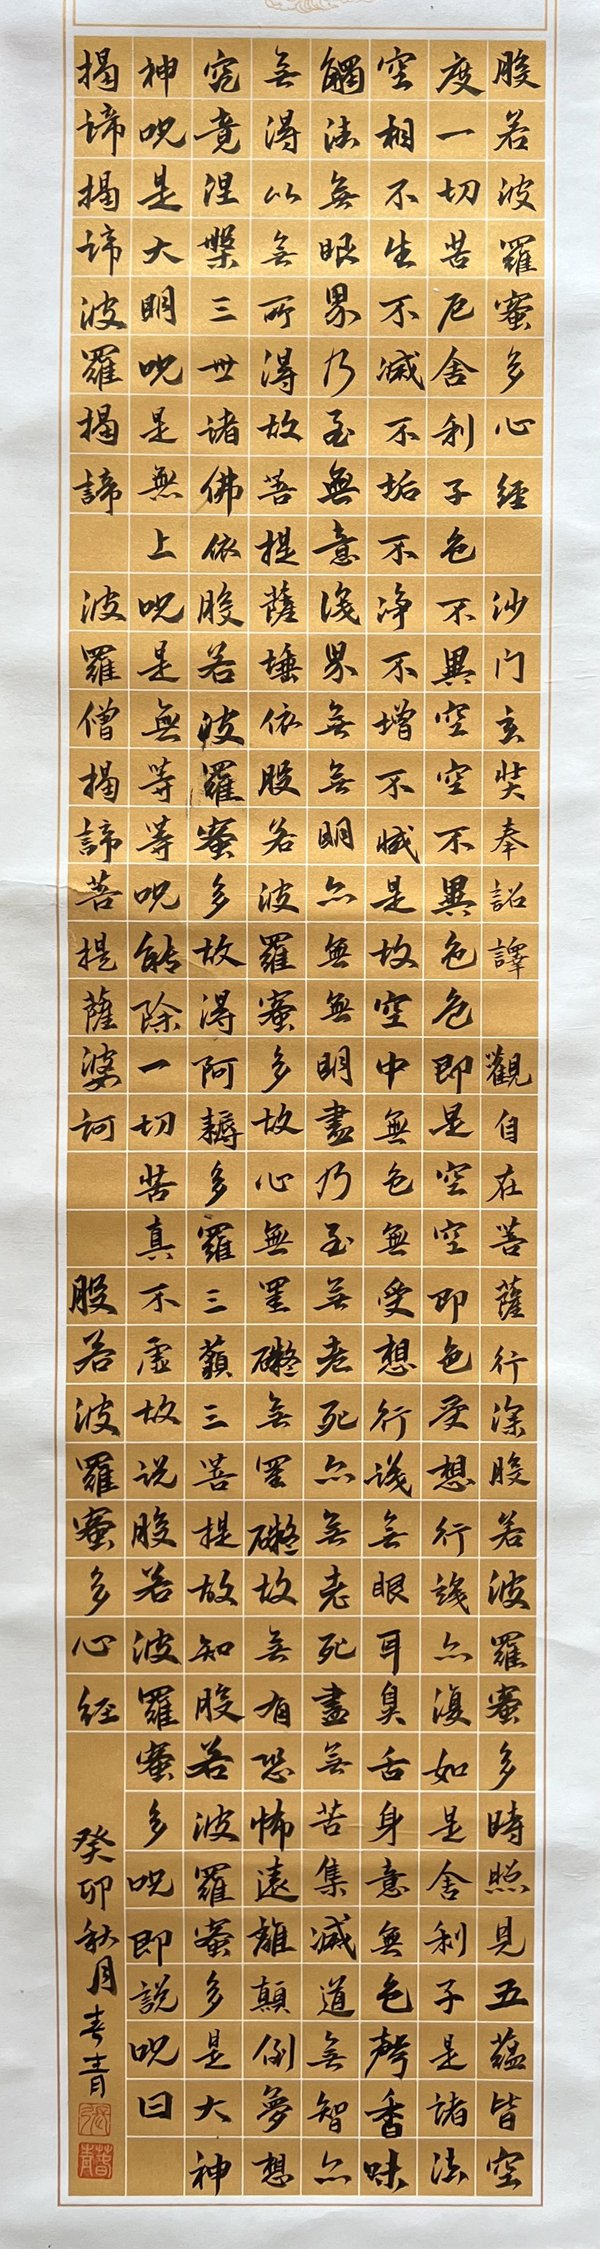 般若波羅蜜多心經 沙門玄奘奉詔譯 觀自在菩薩行深般若波羅蜜多時照見五蘊皆空
度一切苦厄舍利子色不異空空不異色色即是空空即色受想行識亦復如是舍利子是諸法
空相不生不滅不垢不净不增不減是故空中無色無受想行識無眼耳鼻舌身意無色聲香味
觸法無眼界乃至無意識界無無明亦無無明盡乃至無老死亦無老死盡無苦集滅道無智亦
無得以無所得故菩提薩埵依般若波羅蜜多故心無罣礙無罣礙故無有恐怖遠離顛倒夢想
究竟涅槃三世諸佛依般若波羅蜜多故得阿耨多羅三藐三菩提故知般若波羅蜜多是大神
神呪是大明呪是無上呪是無等等呪能除一切苦真不虛故說般若波羅蜜多呪即說呪曰
揭諦揭諦波羅揭諦 波羅僧揭諦菩提薩婆訶 般若波羅蜜多心經
癸卯秋月春青